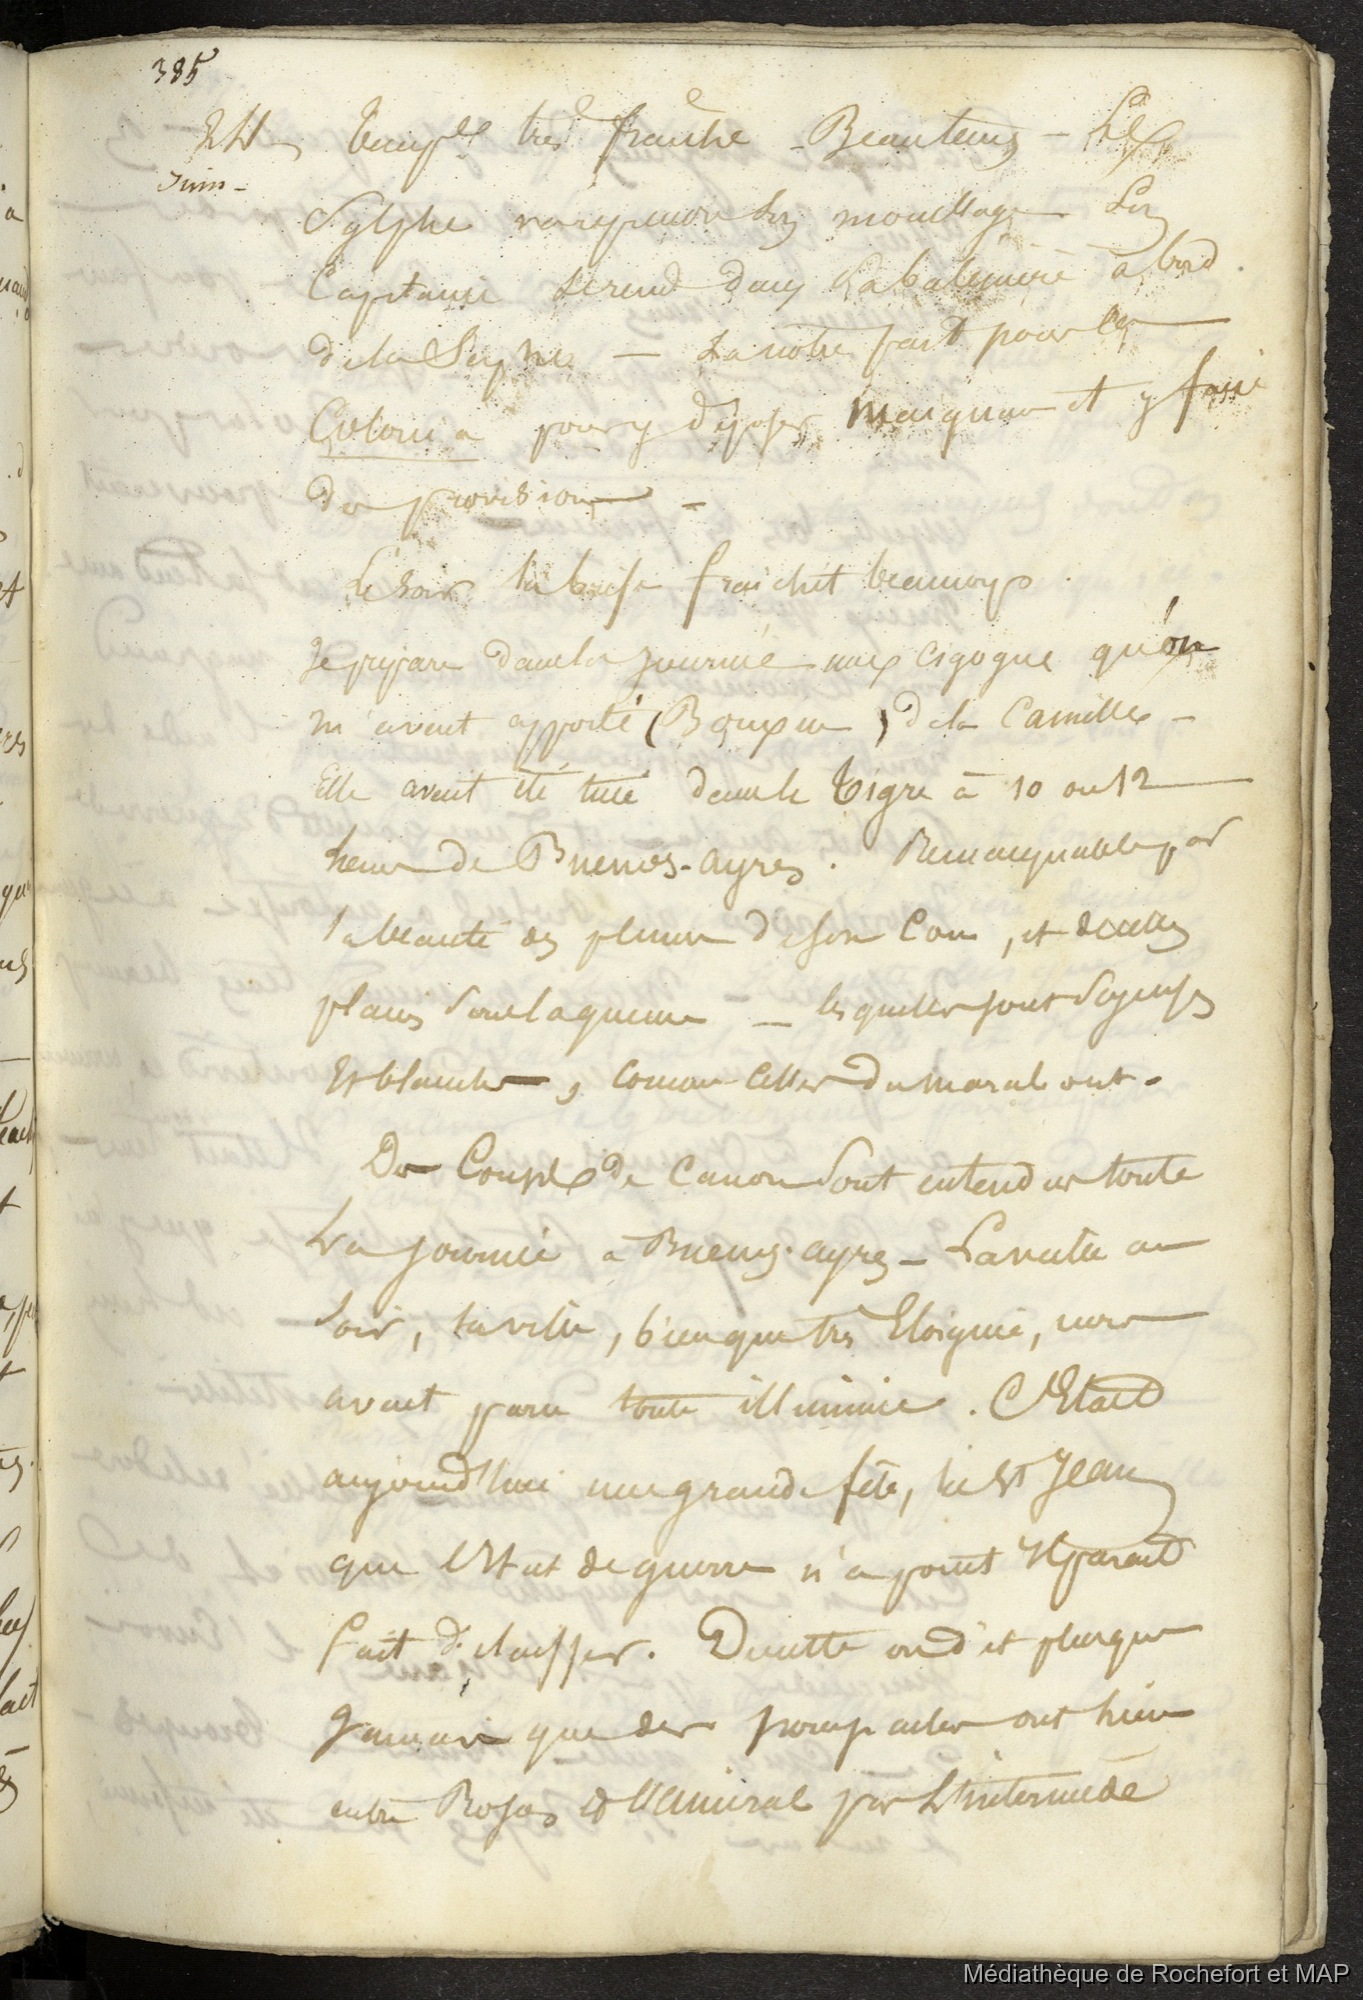 385
24 Temp.re très fraîche - Beautems - Le
Juin -
Sylphe vare mouillage - Le
Capitaine se rend dans la baleinière à bord
de la - La notre part pour la
Colonia pour y déposer Maignan et y faire
de provisions -
Le soir la brise fraichit beaucoup.
Je prépare dans la journée une cigogne qu'on
m'avait apporté ( ) de la Camille -
Elle avait été tuée dans le Tigre à 10 ou 12
heures de Buenos-ayres. Remarquable par
la beauté des plumes de son cou, et de celles
placées sous la queue - lesquelles sont soyeuses
et blanches, comme celles du marabout.
De Coups de canon sont entendus toute
la journée à Buenos-ayres - La nuit au
soir, la ville, bien que très Eloignée, nous
avait paru toute illuminée. C'Etait
aujourd'hui une grande fête, la St Jean
que l'Etat de guerre n'a point Il parait
fait délaisser. Du reste on dit plus que
Jamais que des pourparlers ont lieu
entre Rosas et l'Amiral par l'Intermède
Médiathèque de Rochefort et MAP